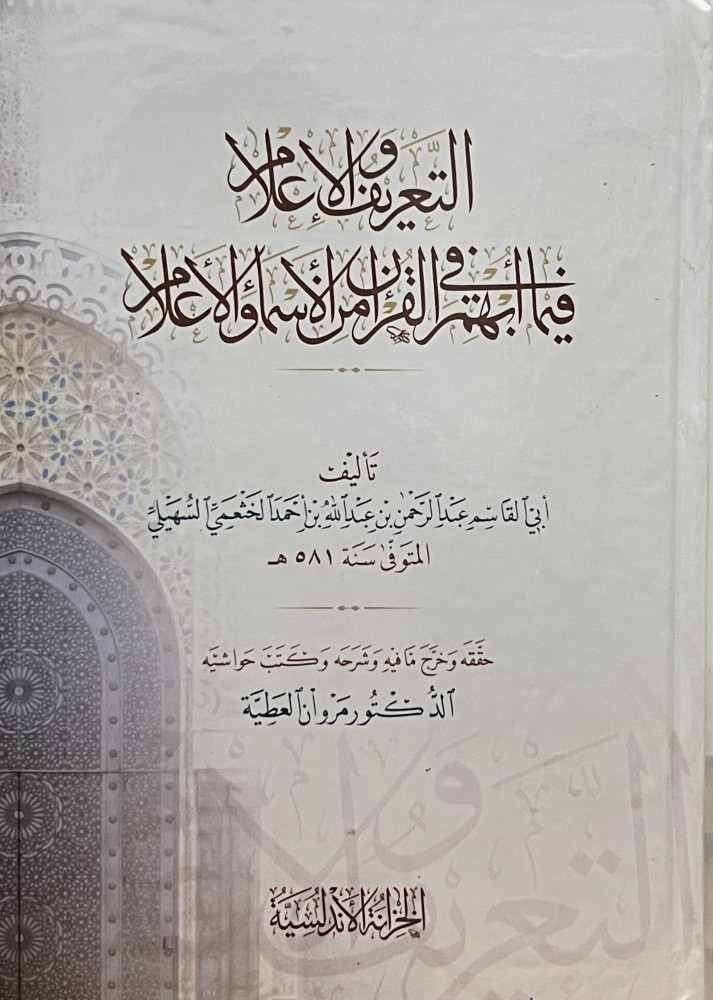 التعريف والإعلام
فيما أبهم في القرآن من الأسماء والأعلام
تأليف
أبي القاسم عبد الرحمن بن عبد الله بن أحمد الخثعمي السهيلي
المتوفى سنة ٥٨١ هـ
حققه وخرج ما فيه وشرحه وكتب حواشيه
الدكتور مروان العطية
الخزانة الأندلسية